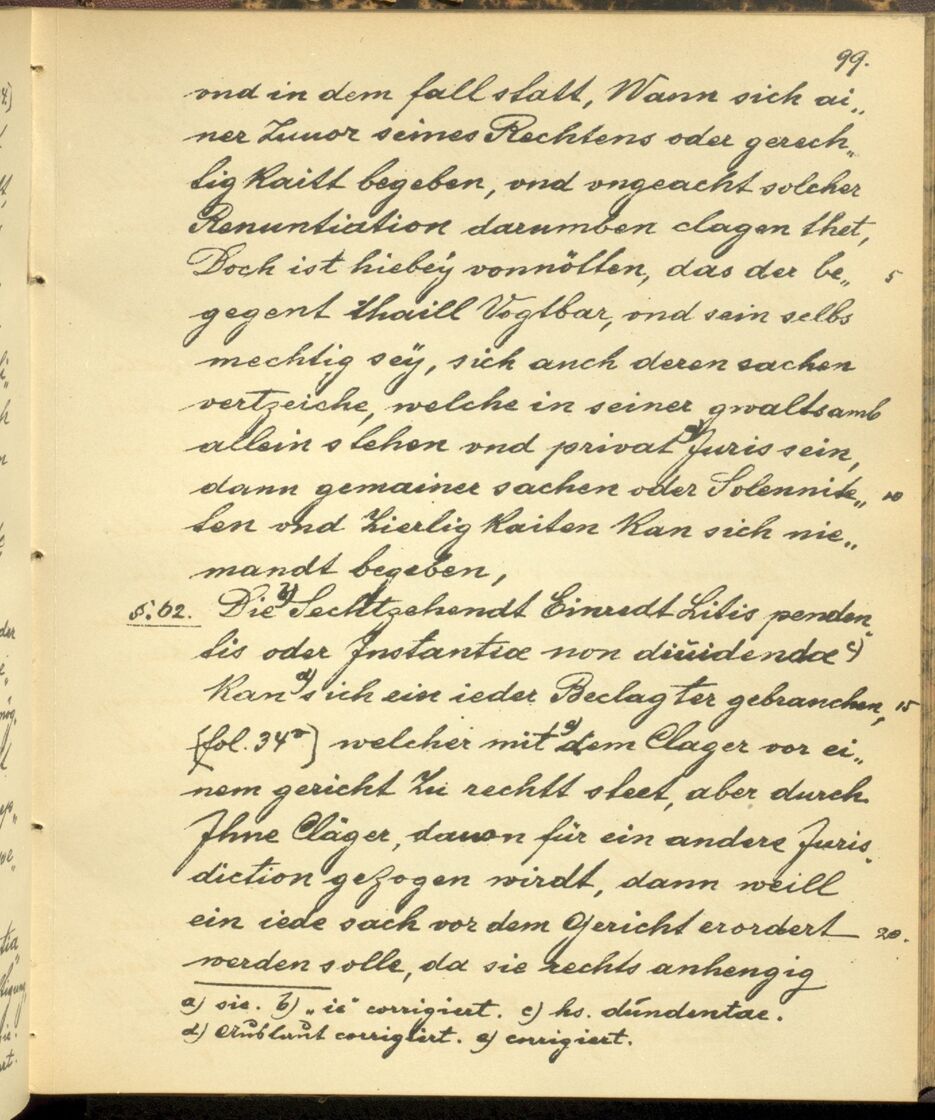 99.
vnd in dem fall statt, Wann sich ai„
ner Zuuor seines Rechtens oder gerech„
tigkaitt begeben, vnd vngeacht solcher
Renuntiation darumben clagen thet,
Doch ist hiebeÿ vonnötten, das der be„ 5
gegent thaill Vogtbar, vnd sein selbs
mechtig seÿ, sich auch deren sachen
vertzeiche, welche in seiner gwaltsamb
allein stehen vnd privat a) Juris sein,
dann gemainer sachen oder Solennite„ 10
ten vnd Zierligkaiten kan sich nie„
mandt begeben,
§. 62. Die b) Sechtzehendt Einredt Litis penden„
tis oder Instantiæ non diuidendæ c)
kan d) sich ein ieder Beclagter gebrauchen, 15
[fol. 34v] welcher mit e) dem Clager vor ei„
nem gericht zu rechtt steet, aber durch
Ihne Cläger, dauon für ein andere Juris„
diction gezogen wirdt, dann weill
ein iede sach vor dem Gericht erordert 20.
werden solle, da sie rechts anhengig
a) sic. b) „ie“ corrigiert. c) hs. dündentae.
d) corrigiert. e) corrigiert.